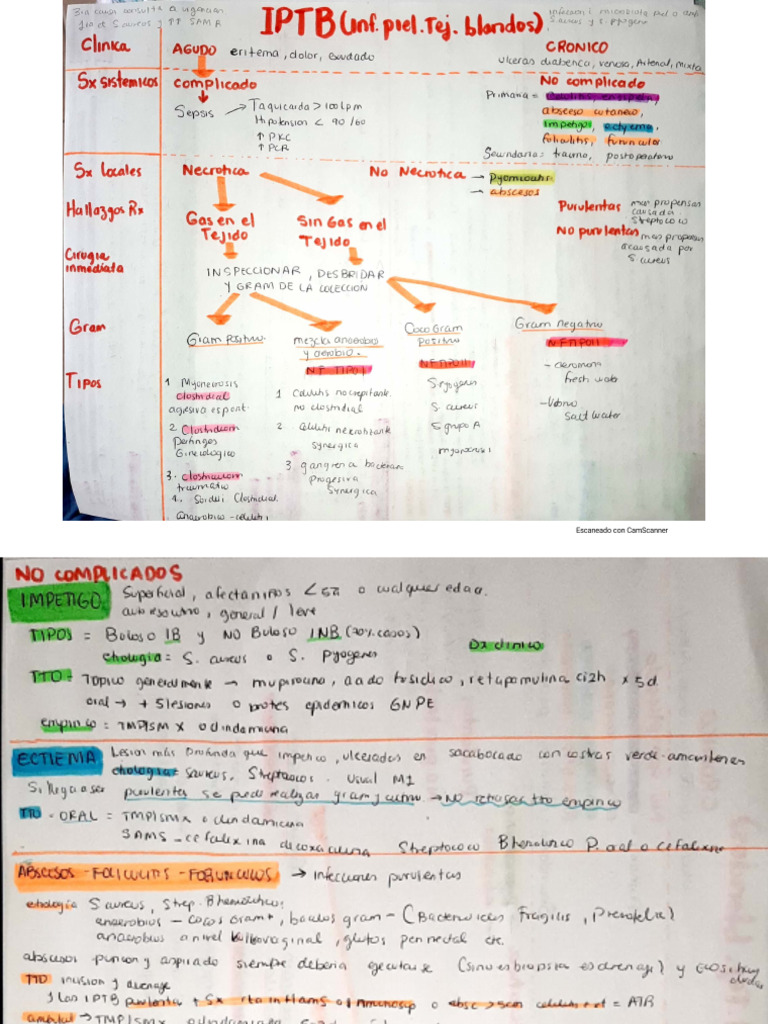 IPTB (inf. piel. Tej. blandos).
Clinica
AGUDO eritema, dolor, exudado
CRONICO
ulceras diabetica, venosa, Arterial, mixta
Sx sistemicos
complicado
Sepsis → Taquicardia > 100 lpm
Hipotension < 90/60
↑ PKC
↑ PCR
No complicado
Primaria =
absceso cutaneo,
impetigo, ectyema,
foliculitis, furunculos
Secundario: trauma, postoperatorio
Sx locales
Necrotica
No Necrotica → Pyomiositis
→ abscesos
Hallazgos Rx
Gas en el
Tejido
Sin Gas en el
Tejido
Purulentas mas propensas
causada
Streptococo
No purulentas mas propensas
causada por
S. aureus
Cirugia
inmediata
INSPECCIONAR, DESBRIDAR
Y GRAM DE LA COLECCION
Gram
Gram Positivo.
mezcla anaerobio
y aerobio.
NF TIPO I
Coco Gram
Positivo
NF TIPO II
Gram negativo
NF TIPO II
Tipos
1 Myonecrosis
clostridial
agresiva espont.
2. Clostridium
Perfringes
Ginecologico
3. clostridium
traumatico
4. Clostridial
Anaerobico - celulitis
1 Celulitis no crepitante
no clostridial
2 Celulitis necrotizante
synergica
3. gangrena bacteriana
Progresiva
Synergica
S. pyogenes
S. aureus
S grupo A
- aeromona
fresh water
- Vibrio
Salt water
Escaneado con CamScanner
NO COMPLICADOS
IMPETIGO Superficial, afecta niños < 5a o cualquier edad.
autoresolutivo, general / leve
TIPOS = Buloso IB y NO Buloso INB (70% casos)
etiologia = S. aureus o S. Pyogenes
Dx clinico
TTO = Topico generalmente → mupirocino, acido fusidico, retapamulina c12h x 5d
oral → + 5 lesiones o brotes epidemicos GNPE
empirico = TMP/SMX o clindamicina
ECTIEMA Lesion más profunda que impetico, ulceradas en sacabocado con costras verde-amarillentas
etiologia = S aureus, Streptococos. Usual MI
Si llega a ser purulentas se puede realizar gram y cultivo → No retrasar tto empirico
TTO - ORAL = TMP/SMX o clindamicina
SAMS - cefalexina dicloxacilina Streptococo B hemolitico P. oral o cefalexina
ABSCESOS - FOLICULITIS - FORUNCULOS → infecciones purulentas
etiologia S aureus, Strep. B hemolitico:
anaerobios - cocos Gram+, bacilos gram - (Bacteroides Fragilis, Prevotella)
anaerobios a nivel bulbovaginal, glutos perirrectal etc.
abscesos puncion y aspirado siempre deberia ejecutarse
TTO incision y drenaje